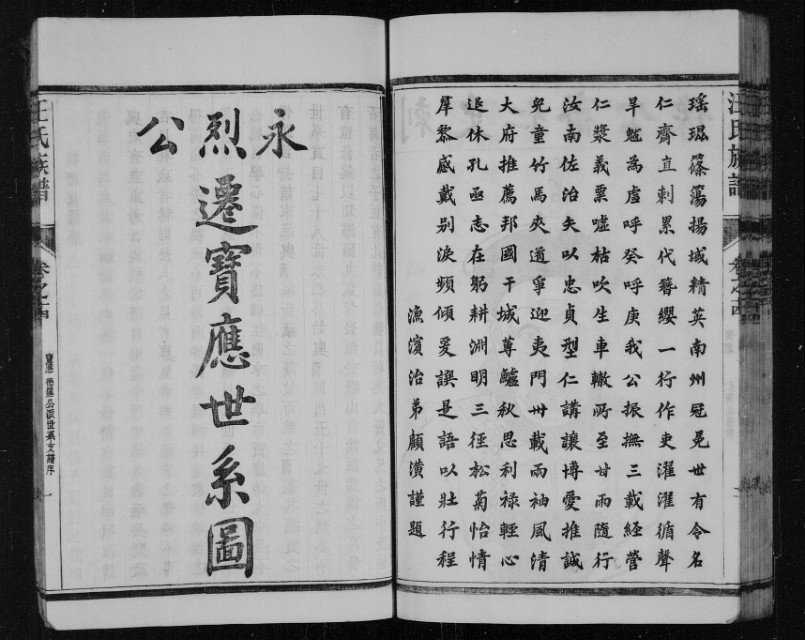 瑶琨篠簜揚域精英南州冠冕世有令名
仁齋直剌累代簪纓一行作吏濯濯循聲
旱魃為虐呼癸呼庚我公振撫三載經營
仁漿義粟噓枯吹生車轍所至甘雨隨行
汝南佐治矢以忠貞型仁講讓博愛推誠
兒童竹馬夾道爭迎夷門卅載兩袖風清
大府推薦邦國干城蓴鱸秋思利祿輕心
退休孔亟志在躬耕淵明三徑松菊怡情
羣黎感戴别淚頻傾爰譔是語以壯行程
漁濱治弟顧潢謹題
永烈公
遷寶應世系圖
汪氏族譜
卷之十四
汪氏族譜